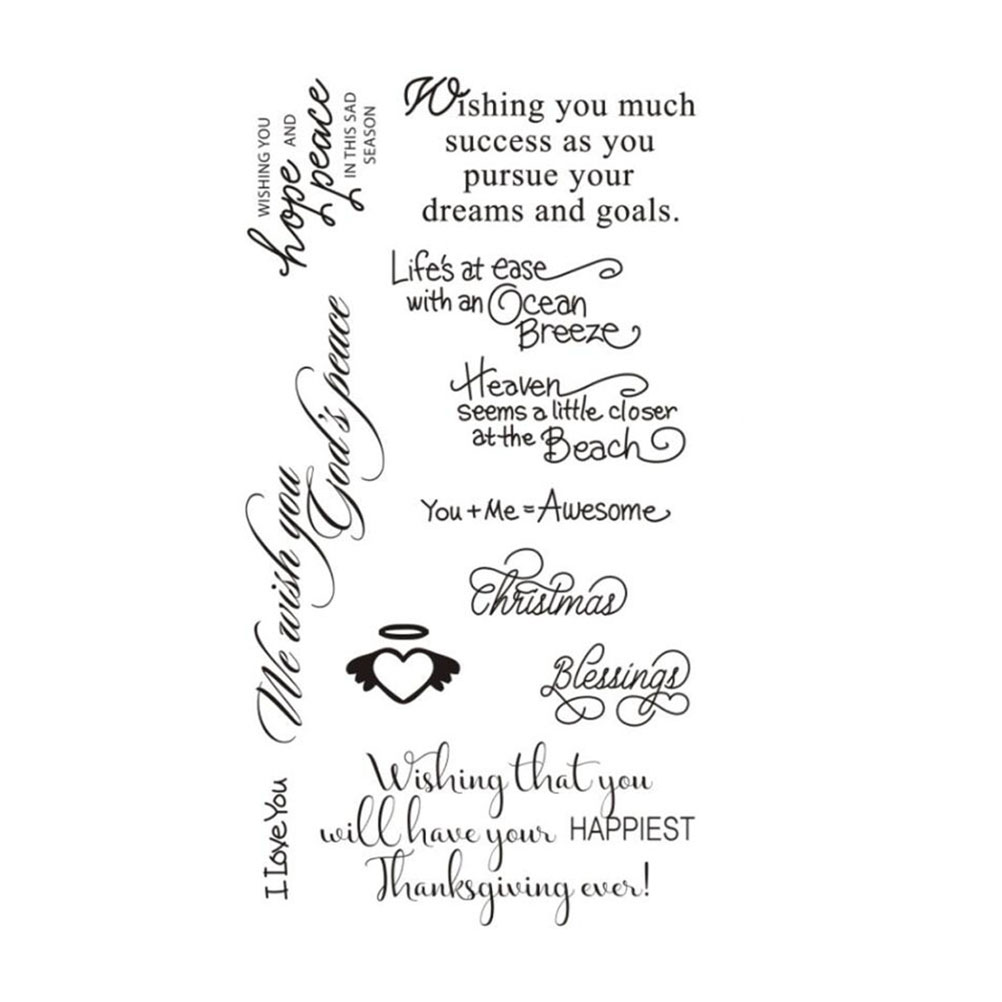 WISHING YOU
hope AND
peace
IN THIS SAD
SEASON
Wishing you much
success as you
pursue your
dreams and goals.
Life's at ease
with an Ocean
Breeze
Heaven
seems a little closer
at the Beach
We wish you
God's peace
You + Me = Awesome
Christmas
Blessings
I Love You
Wishing that you
will have your HAPPIEST
Thanksgiving ever!